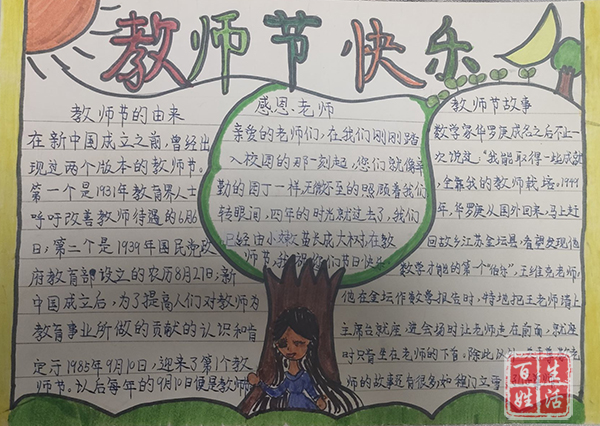 教师节快乐
教师节的由来
在新中国成立之前,曾经出
现过两个版本的教师节。
第一个是1931年教育界人士
呼吁改善教师待遇的6月6
日,第二个是1939年国民党政
府教育部设立的农历8月27日;新
中国成立后,为了提高人们对教师为
教育事业所做的贡献的认识和肯
定于1985年9月10日,迎来了第1个教
师节。以后每年的9月10日便是教师
感恩老师
亲爱的老师们,在我们刚刚踏
入校园的那一刻起,您们就像辛
勤的园丁一样无微不至的照顾着我们
转眼间,四年的时光就过去了,我们
已经由小树苗长成大树,在教
师节,我祝您们节日快乐
教师节故事
数学家华罗庚成名之后不止一
次说过,"我能取得一些成就
全靠我的教师栽培。1949
年,华罗庚从国外回来,马上赶
回故乡江苏金坛县,看望发现他
数学才能的第一个"伯乐",王维克老师,
他在金坛作数学报告时,特地把王老师请上
主席台就座,进会场时让老师走在前面,就座
时只肯坐在老师的下首。除此以外
师的故事还有很多如程门立雪
百姓生活